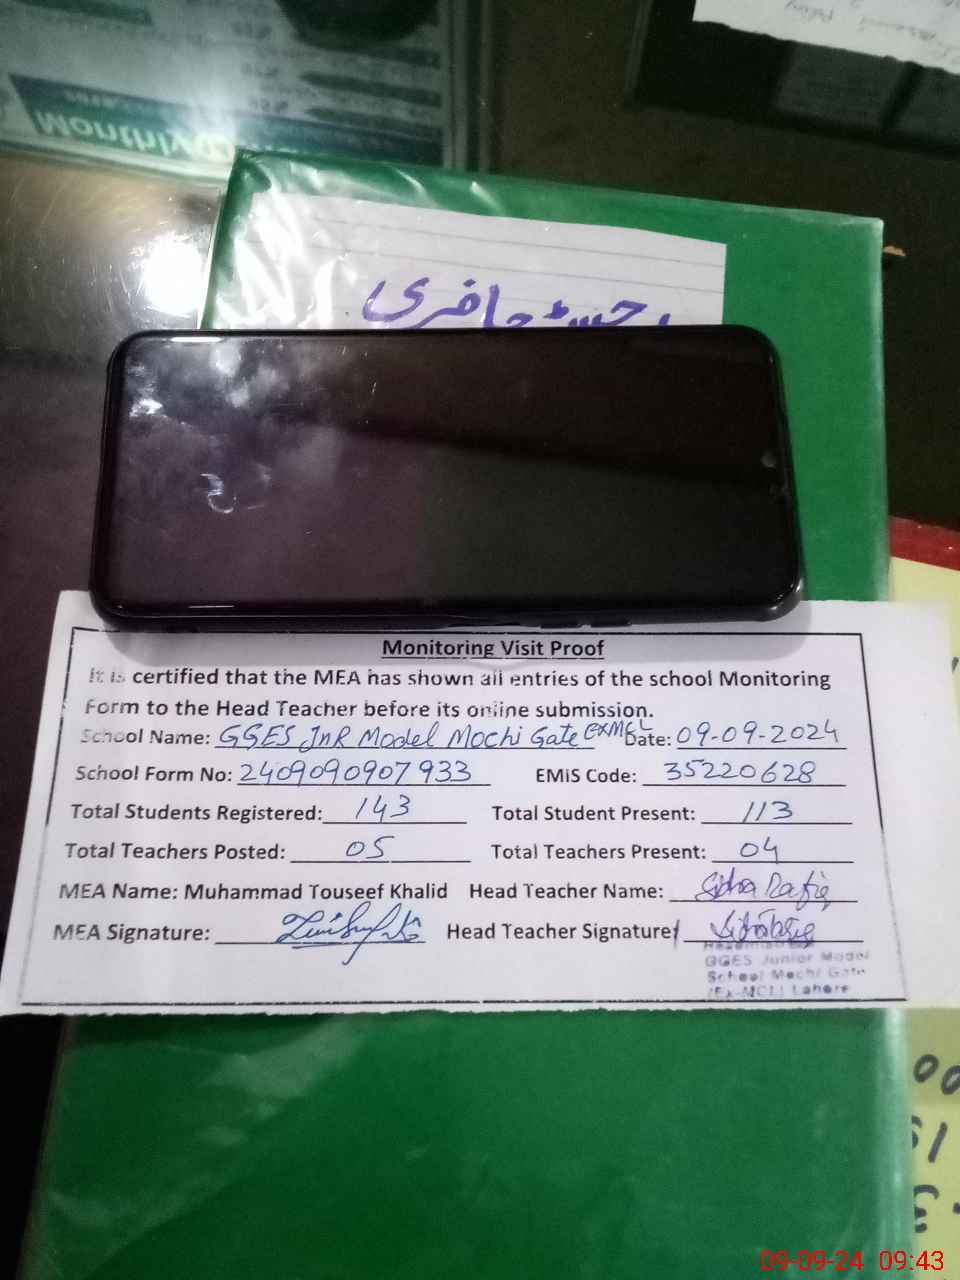 Monthly
رجسٹر حاضری
Monitoring Visit Proof
It is certified that the MEA has shown all entries of the school Monitoring
Form to the Head Teacher before its online submission.
School Name: GGES JnR Model Mochi Gate ExMCL Date: 09-09-2024
School Form No: 2409090907933 EMIS Code: 35220628
Total Students Registered: 143 Total Student Present: 113
Total Teachers Posted: 05 Total Teachers Present: 04
MEA Name: Muhammad Touseef Khalid Head Teacher Name: Sidra Rafiq
MEA Signature: Head Teacher Signature:
GGES Junior Model
School Mochi Gate
(Ex-MCL) Lahore
09-09-24 09:43